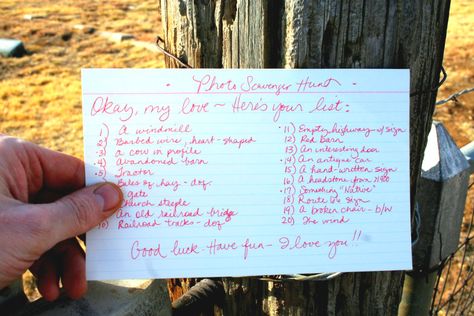 Photo Scavenger Hunt
Okay, my love ~ Here's your list:
1) A windmill
2) Barbed wire, heart-shaped
3) A cow in profile
4) Abandoned barn
5) Tractor
Bales of hay - dof
Gate
Church steeple
An old railroad bridge
10) Railroad tracks - dof
11) Empty highway w/ sign
12) Red barn
13) An interesting door
14) An antique car
15) A hand-written sign
16) A headstone from
17) Something "Native"
18) Route sign
19) A broken chair - b/w
20) The wind
Good luck - Have fun - I love you!!